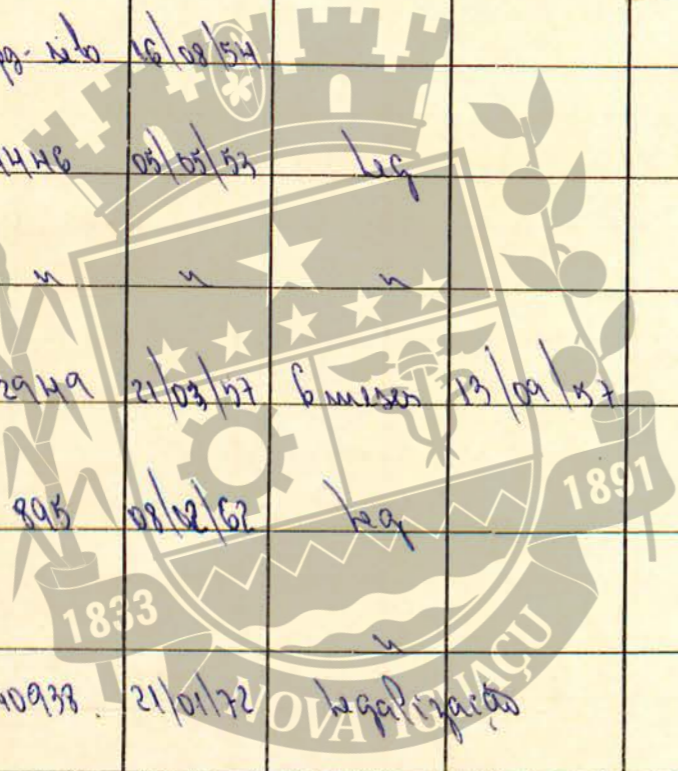 16/08/54
05/05/53 Leg
" " "
21/03/57 6 meses 13/09/57
895 08/02/62 Leg
"
40938. 21/01/72 Legalização
1833
1891
NOVA IGUAÇU